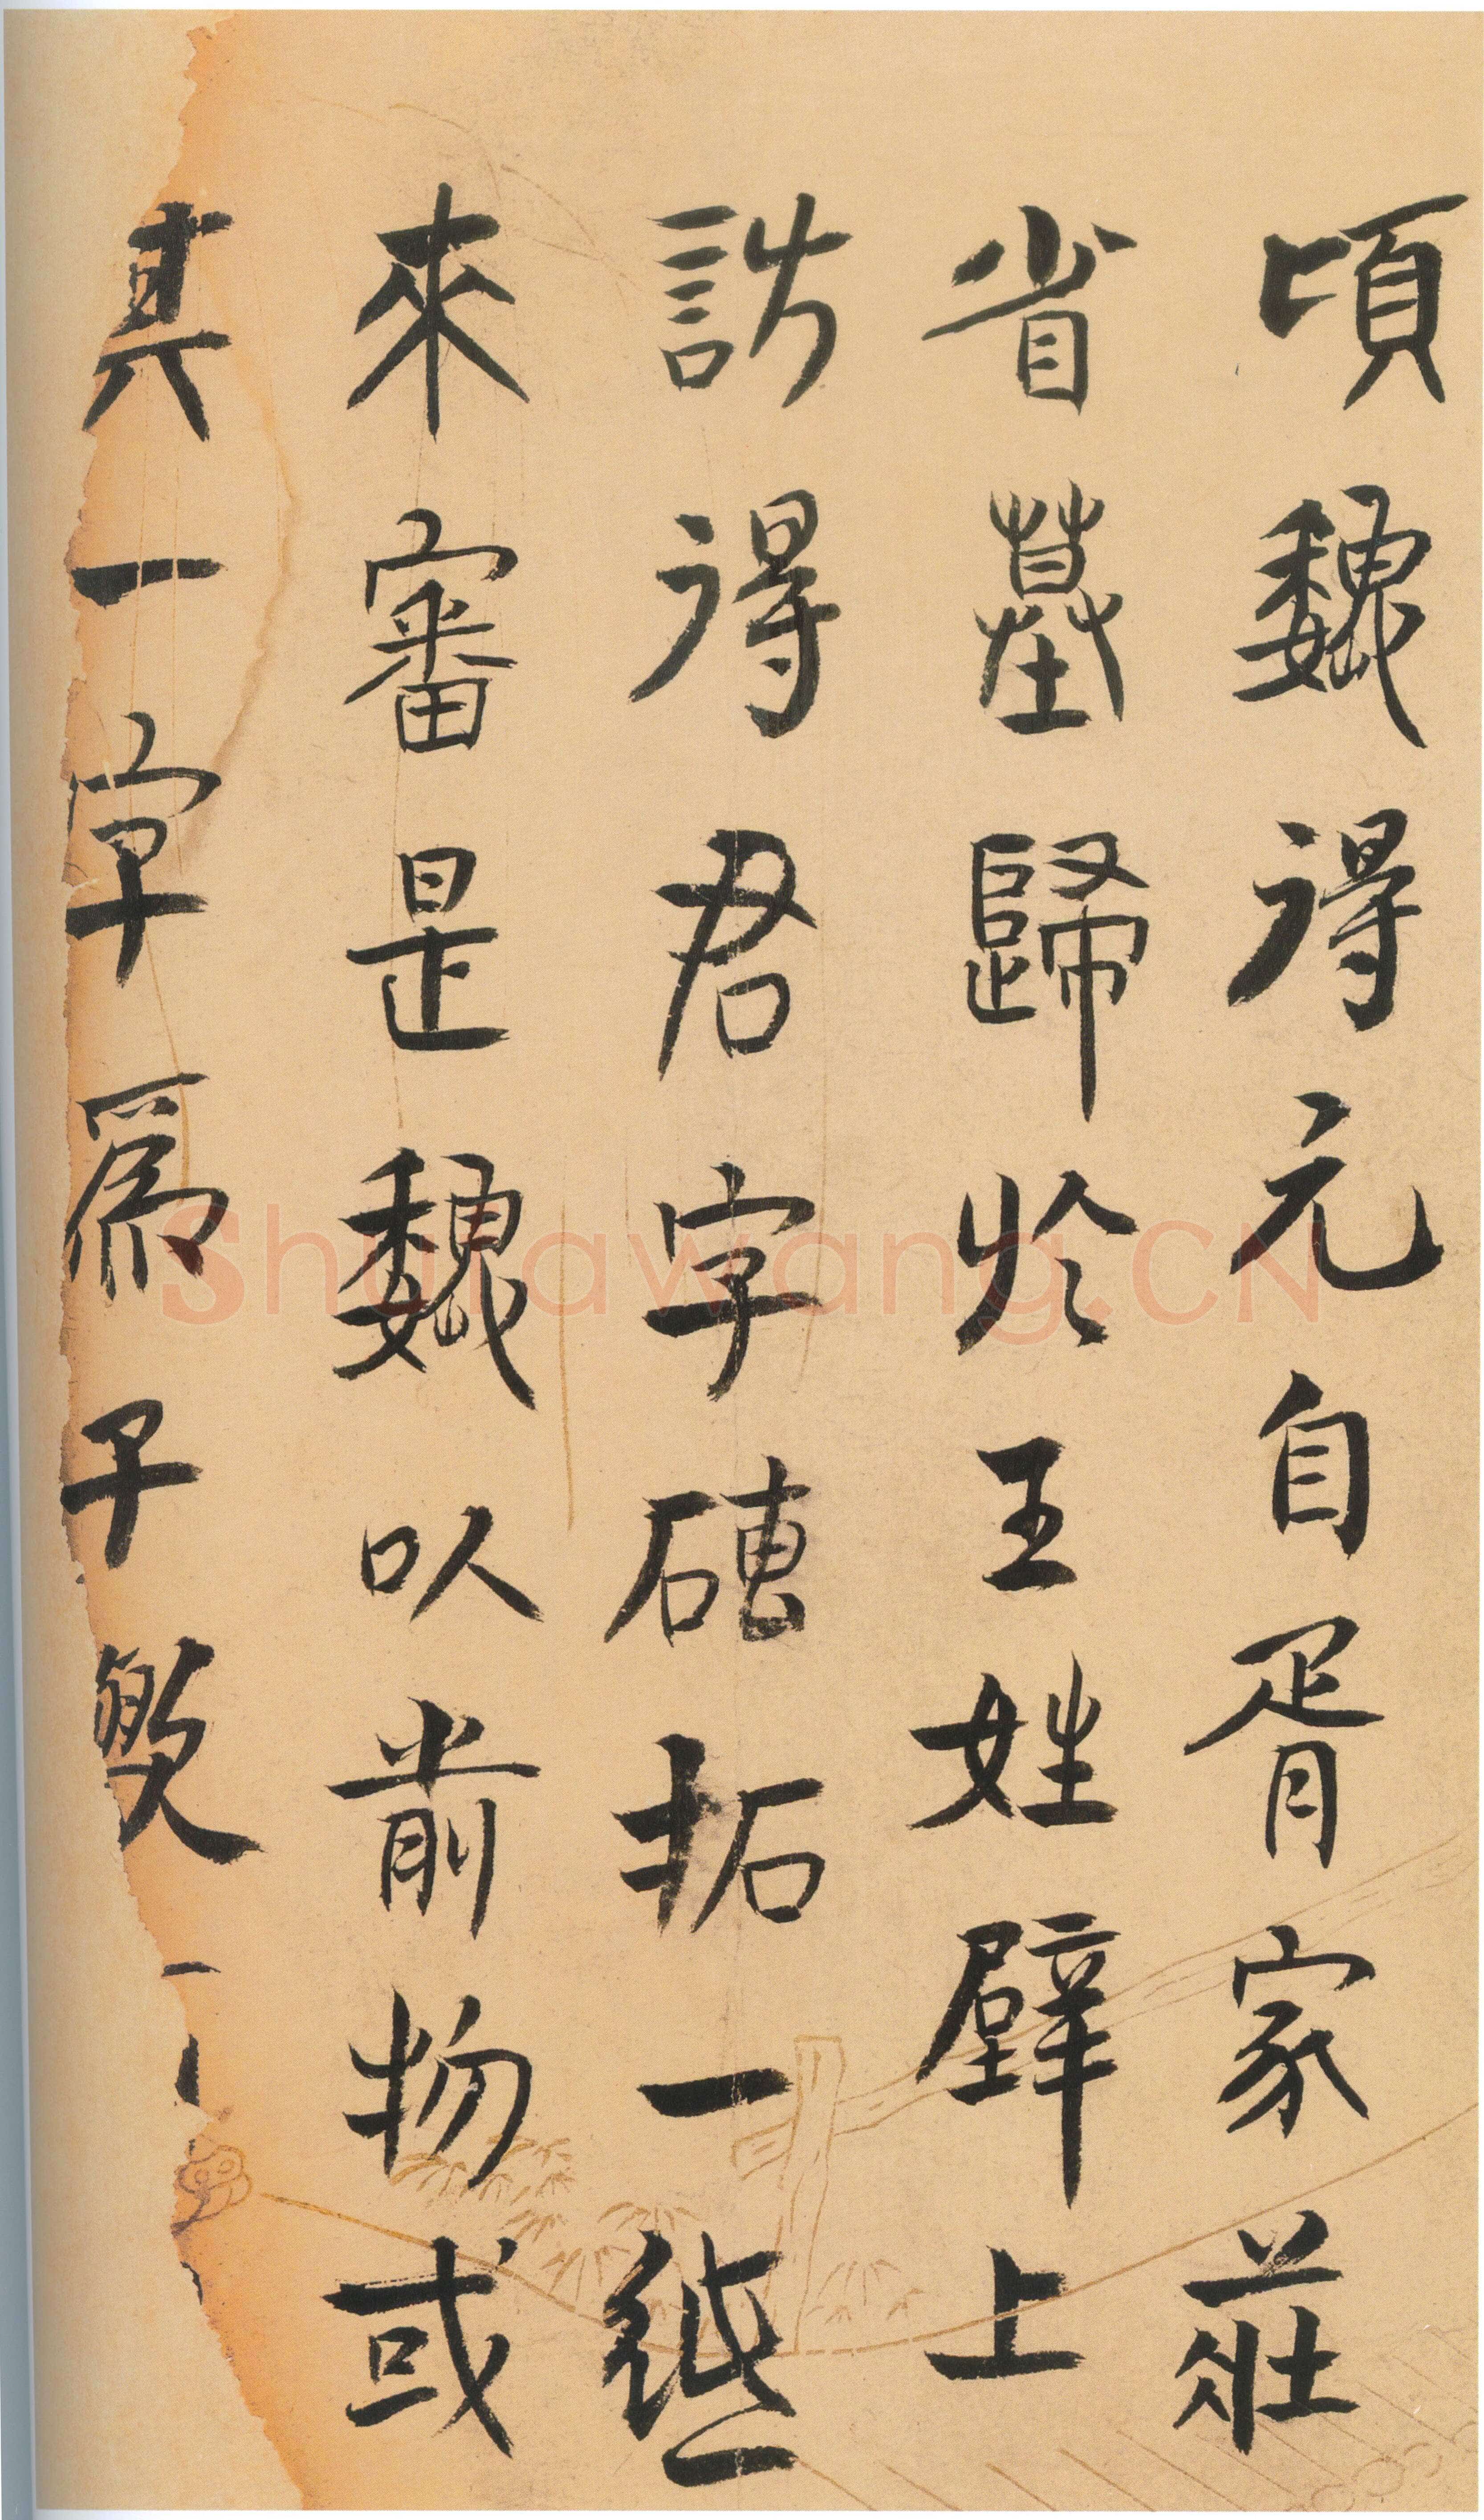 頃魏得元自胥家莊
省墓歸於王姓壁上
訪得君字磚拓一紙
來審是魏以前物或
其一字爲子
Shufawang.CN